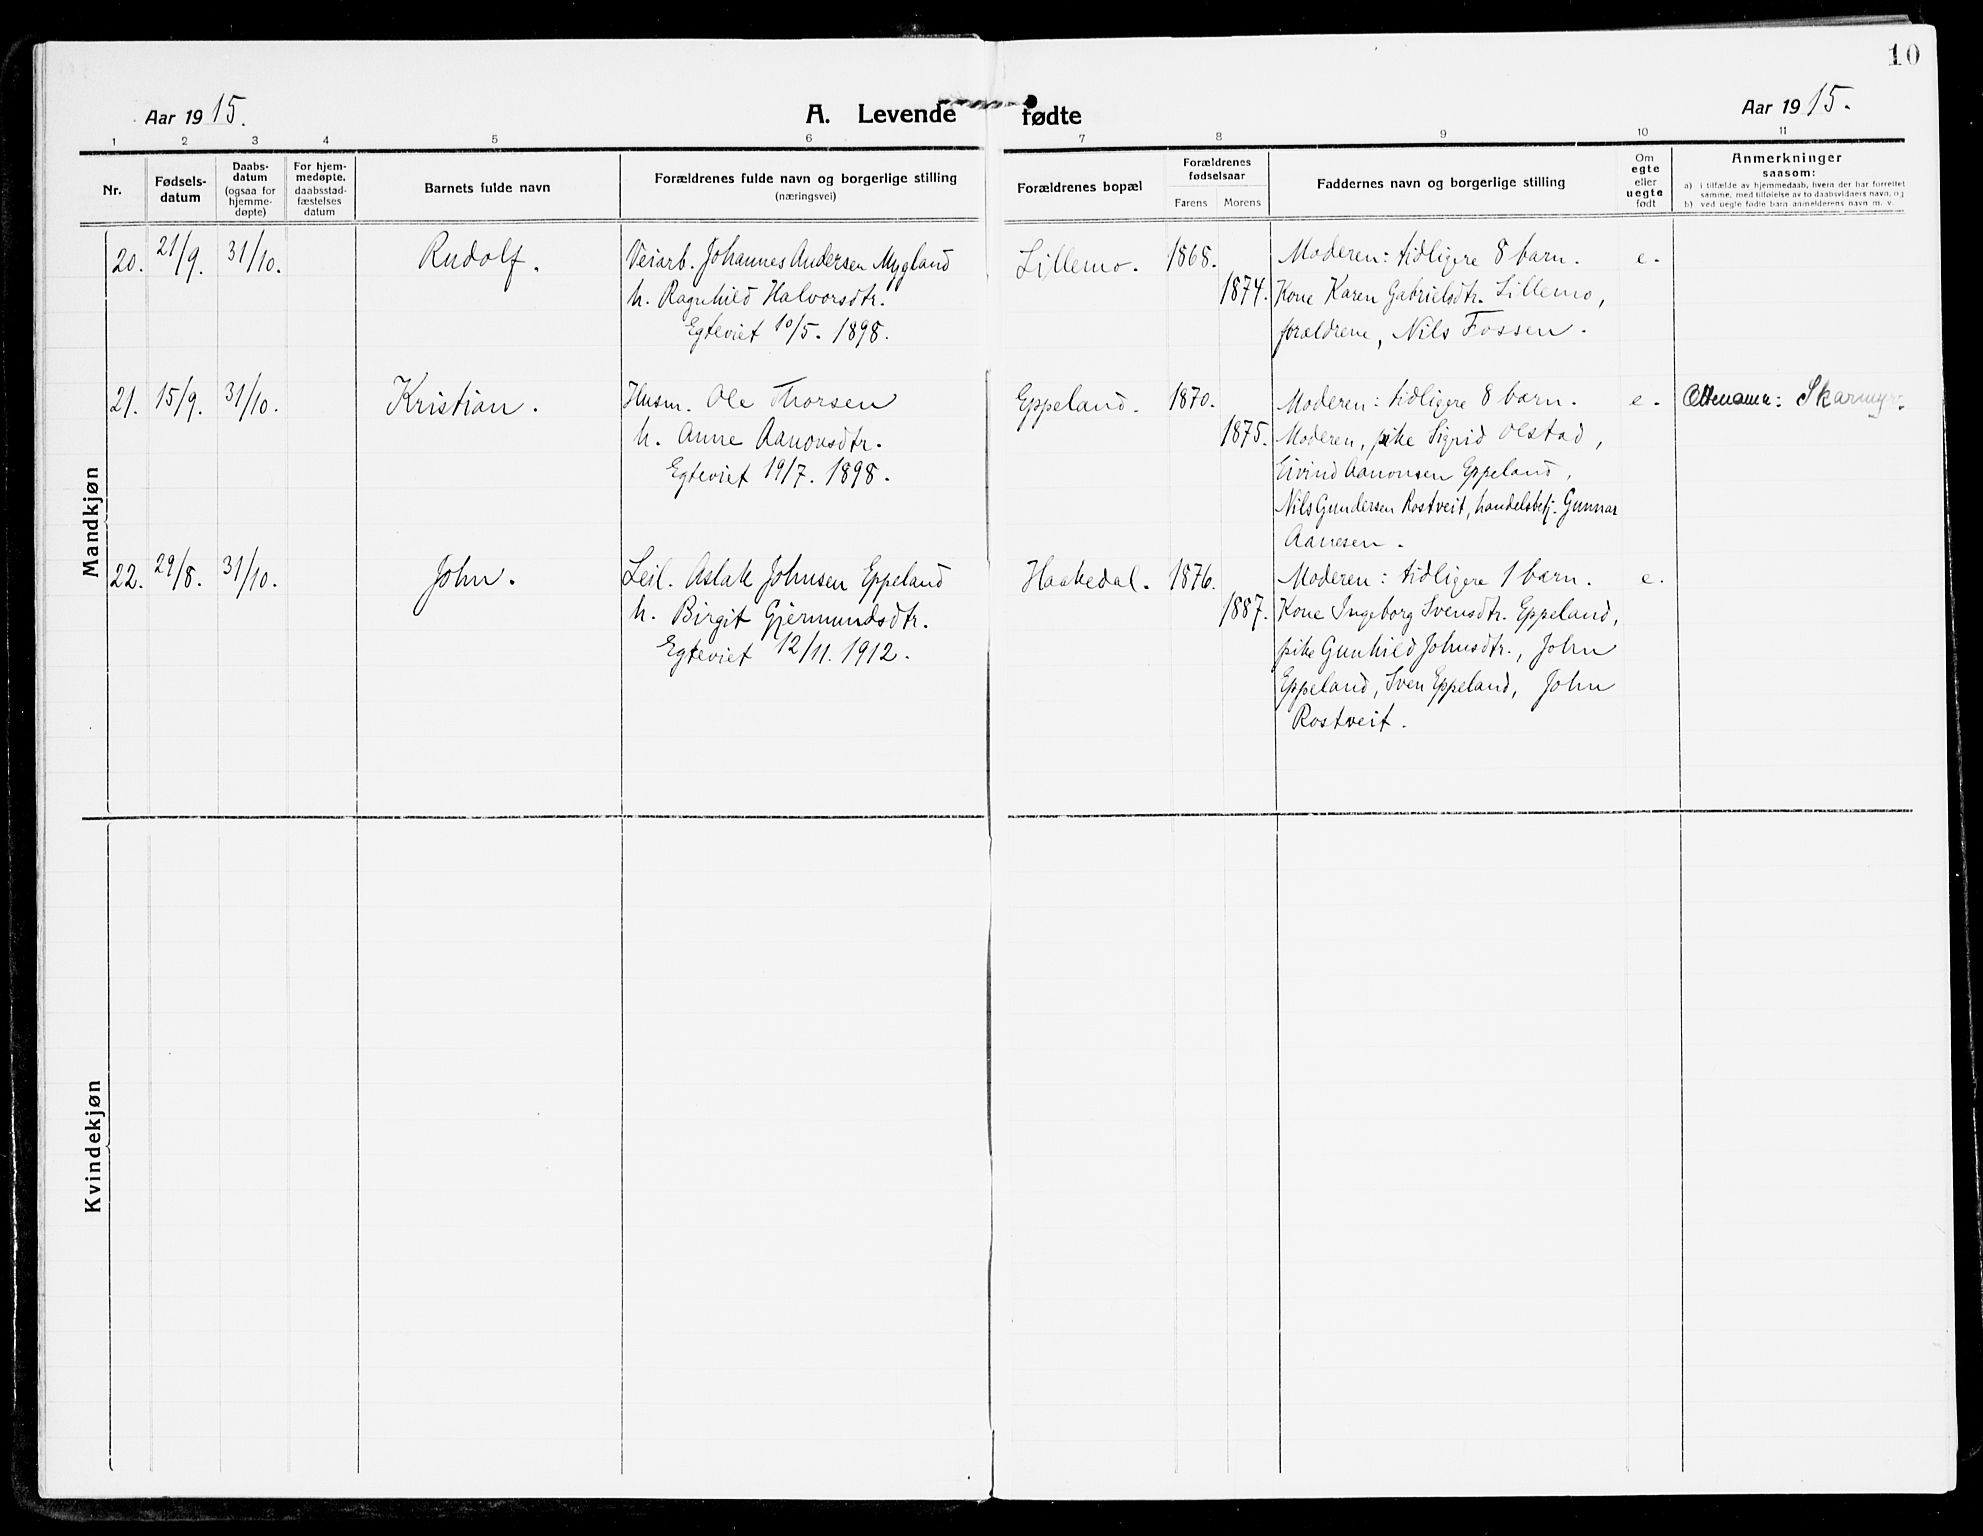 10
Aar 1915.
A. Levende fødte
Aar 1915.
1 2 3 4 5 6 7 8 9 10 11
Nr.
Fødsels-
datum
Daabs-
datum
(ogsaa for
hjemme-
døpte)
For hjem-
medøpte,
daabsstad-
fæstelses
datum
Barnets fulde navn
Forældrenes fulde navn og borgerlige stilling
(næringsvei)
Forældrenes bopæl
Forældrenes
fødselsaar
Farens Morens
Faddernes navn og borgerlige stilling
Om
egte
eller
uegte
født
Anmerkninger
saasom:
a) i tilfælde av hjemmedaab, hvem der har forrettet
samme, med tilføielse av to daabsvidners navn, og
b) ved uegte fødte barn anmelderens navn m. v.
Mandkjøn
20. 21/9. 31/10. Rudolf.
Veiarb. Johannes Andersen Mygland
h. Ragnhild Halvorsdtr.
Egteviet 10/5. 1898.
Lillemo. 1868.
1874.
Moderen: tidligere 8 barn. e.
Kone Karen Gabrielsdtr. Lillemo,
forældrene, Nils Fossen.
21. 15/9. 31/10. Kristian.
Husm. Ole Thorsen
h. Anne Aanonsdtr.
Egteviet 19/7. 1898.
Eppeland. 1870.
1875.
Moderen: tidligere 8 barn. e.
Moderen, pike Sigrid Olstad,
Eivind Aanonsen Eppeland,
Nils Gundersen Rostveit, handelsbetj. Gunnar
Aanesen.
Ettenamn: Skarmyr.
22. 29/8. 31/10. John.
Leil. Aslak Johnsen Eppeland
h. Birgit Gjermundsdtr.
Egteviet 12/11. 1912.
Haakedal. 1876.
1887.
Moderen: tidligere 1 barn. e.
Kone Ingeborg Svensdtr. Eppeland,
pike Gunhild Johnsdtr., John
Eppeland, Sven Eppeland, John
Rostveit.
Kvindekjøn